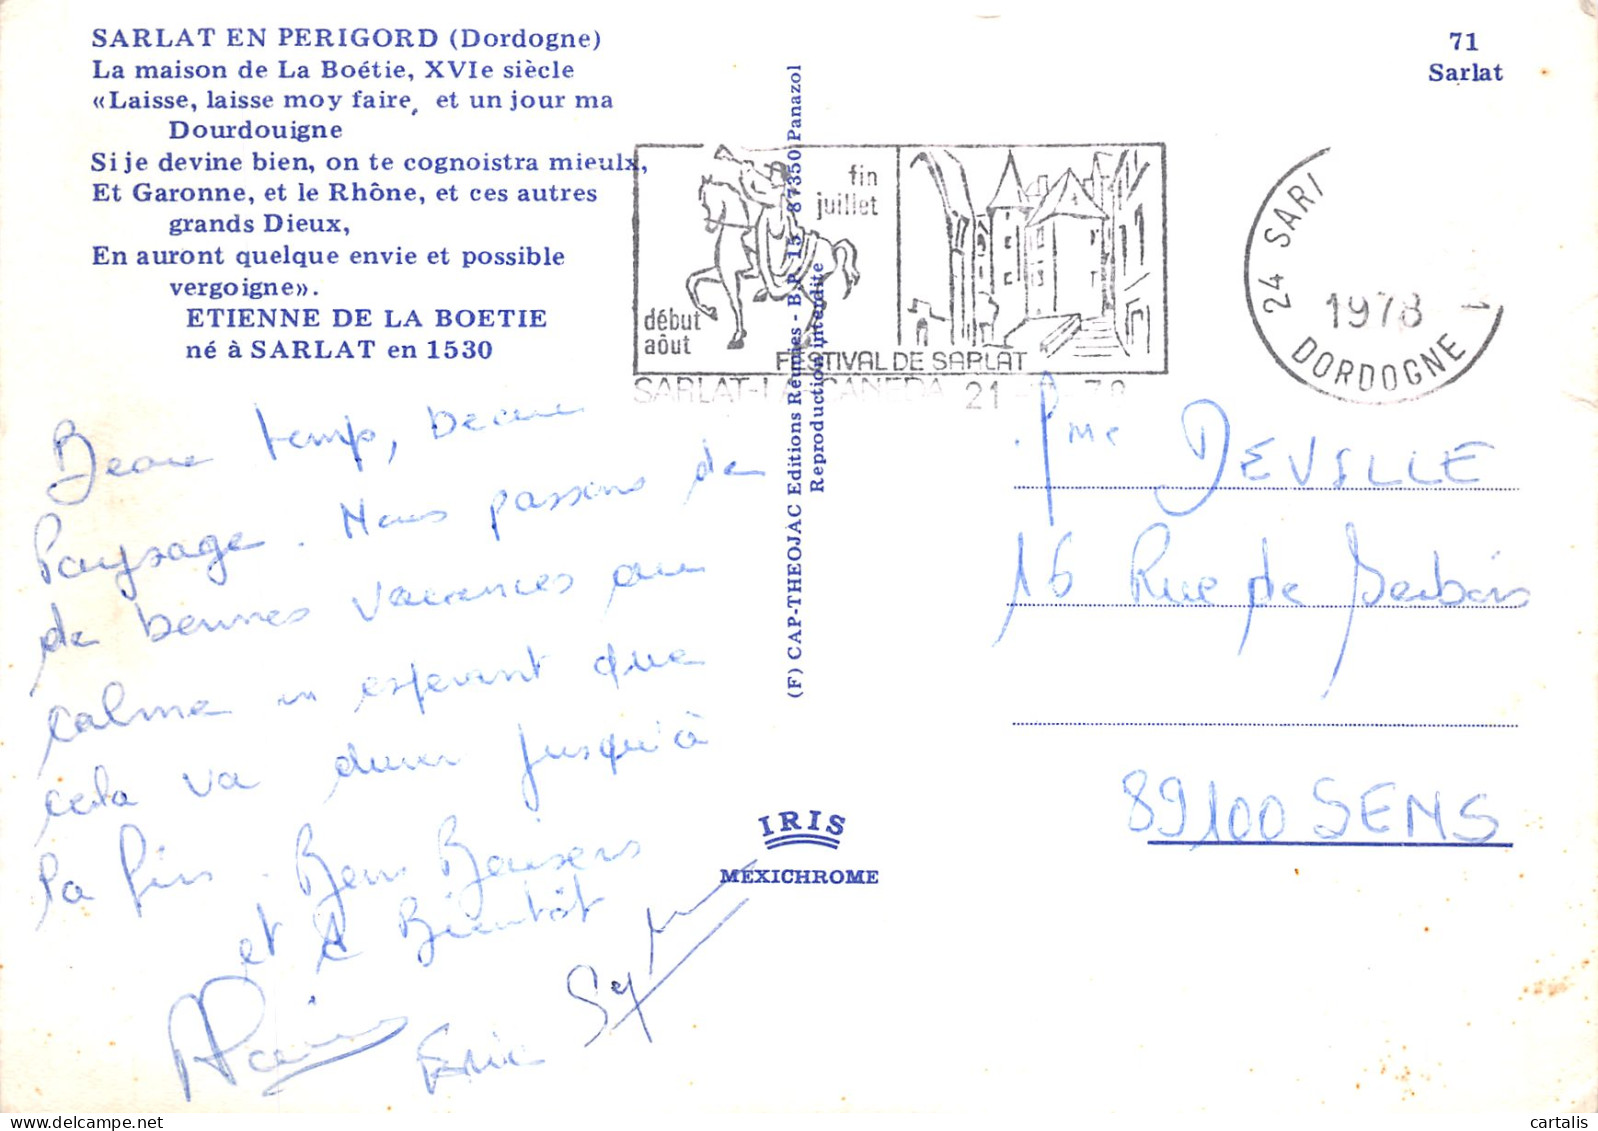 SARLAT EN PERIGORD (Dordogne)
La maison de La Boétie, XVIe siècle
«Laisse, laisse moy faire, et un jour ma
Dourdouigne
Si je devine bien, on te cognoistra mieulx,
Et Garonne, et le Rhône, et ces autres
grands Dieux,
En auront quelque envie et possible
vergoigne».
ETIENNE DE LA BOETIE
né à SARLAT en 1530
71
Sarlat
fin
juillet
début
août
FESTIVAL DE SARLAT
SARLAT-LA-CANEDA 21
24 SARL
1978
DORDOGNE
(F) CAP-THEOJAC Editions Réunies - B.P. 15 - 87350 Panazol
Reproduction interdite
Beau temps, beau
Paysage. Nous passons de
de bonnes vacances au
calme en esperant que
cela va durer jusqu'à
la fin. Bons Baisers
et à Bientôt
Mme DEVILLE
16 Rue de
89100 SENS
IRIS
MEXICHROME
cartalis